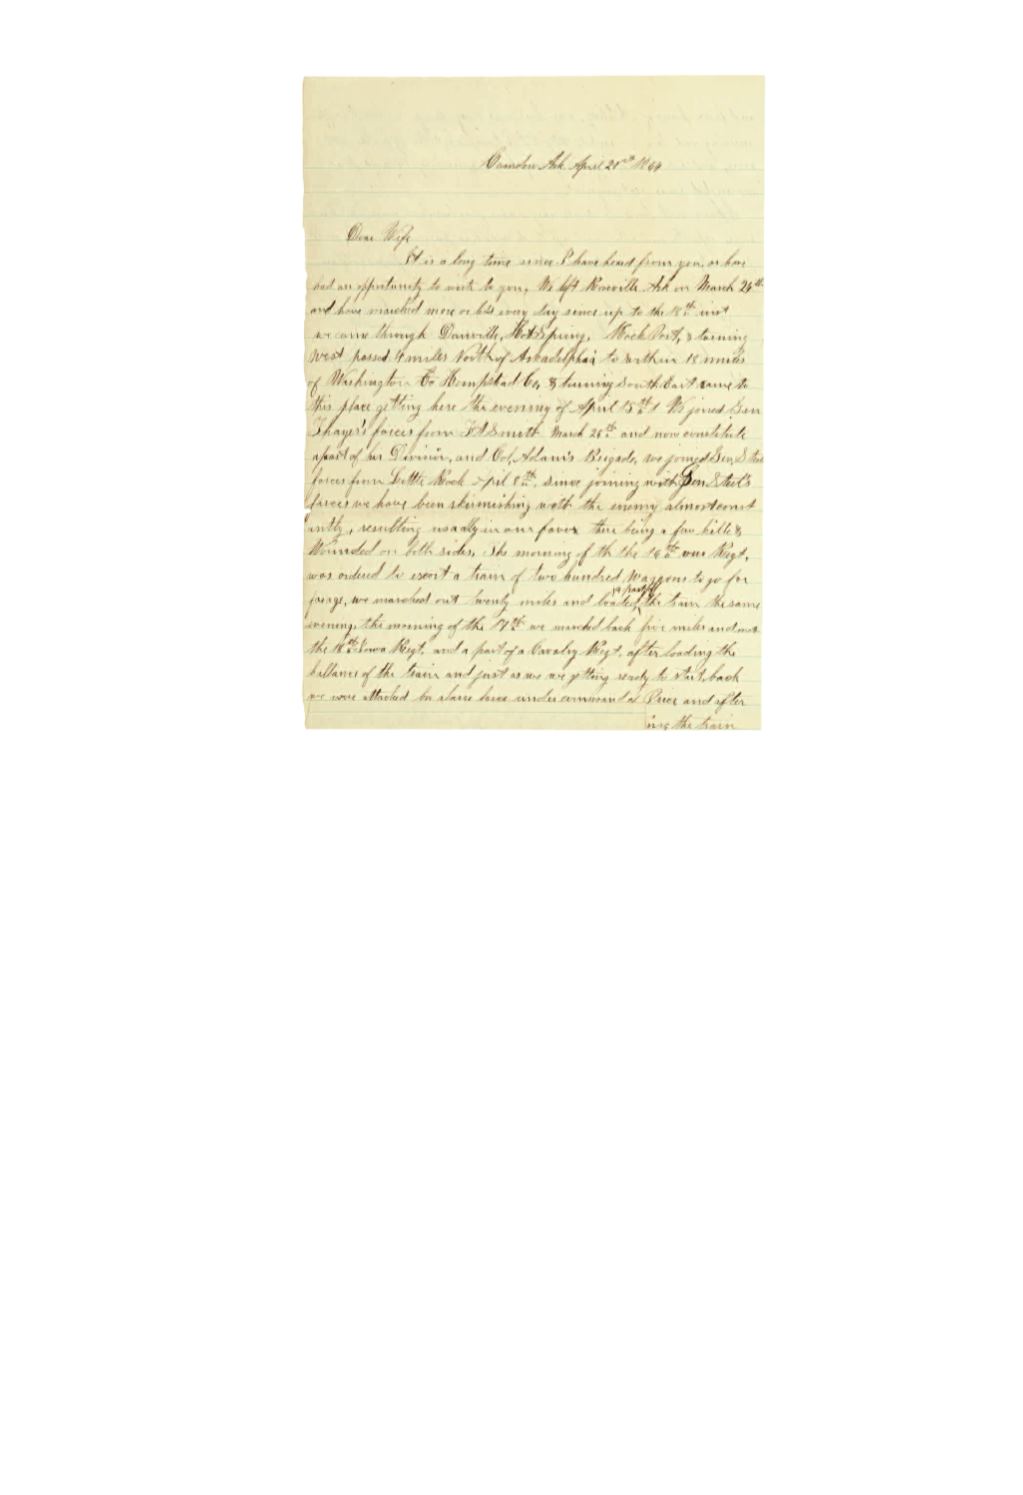 Camden Ark. April 20th 1864
Dear Wife
It is a long time since I have heard from you, or have
had an opportunity to write to you, We left Roseville Ark on March 24th
and have marched more or less every day since up to the 18th inst
we came through Danville, Hot Spring, Rock Port, & turning
west passed 4 miles North of Arkadelphia to within 18 miles
of Washington Co Hempstead Co, & turning South East came to
this place getting here the evening of April 15th We joined Gen
Thayer's forces from Ft Smith March 26th and now constitute
a part of his Division, and Col, Adams Brigade, we joined Gen, Steel
forces from Little Rock April 8th, since joining with Gen Steel's
forces we have been skirmishing with the enemy almost const
antly, resulting usually in our favor there being a few kill &
Wounded on both sides, The morning of th the 16th our Regt,
was ordered to escort a train of two hundred waggons to go for
a part of
forage, we marched out twenty miles and loaded the train the same
evening, the morning of the 17th we marched back five miles and met
the 18th Iowa Regt, and a part of a Cavalry Regt, after loading the
ballance of the train and just as we we getting ready to start back
we were attacked by a large force under command of Price and after
the train